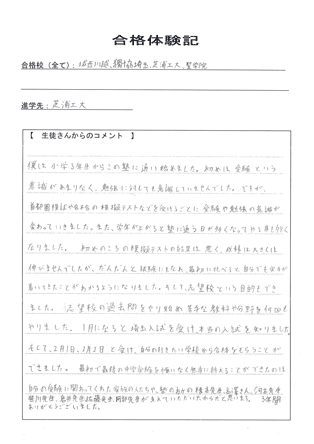 合格体験記
合格校(全て): 城西川越、獨協埼玉、芝浦工大、聖学院
進学先: 芝浦工大
【 生徒さんからのコメント 】
僕は小学3年生からこの塾に通い始めました。初めは受験という
意識があまりなく、勉強に対しても意識していませんでした。ですが、
首都圏模試や合不合の模擬テストなどを受けるごとに受験や勉強の意識が
変わっていきました。また、学年が上がると塾に通う日が多くなってやる事も多く
なりました。 初めのころの模擬テストの結果は悪く、成績は大きくは
伸びませんでしたが、だんだんと試験にもなれ、最初に比べて自分でも力が
着いてきたことがわかるようになりました。そして、志望校という目的もでき
ました。志望校の過去問をやり始め苦手な教科や分野を何回も
やりました。1月になると埼玉入試を受け、本当の入試を知りました。
そして、2月1日、2月2日と受け、自分の行きたい学校から合格をもらうことが
できました。最初で最後の中学受験を悔いなく無事に終えることができたのは
自分の受験に関わってくれた家族の人たちや、塾の
先生が支えていただいたからだと思います。 3年間
ありがとうございました。